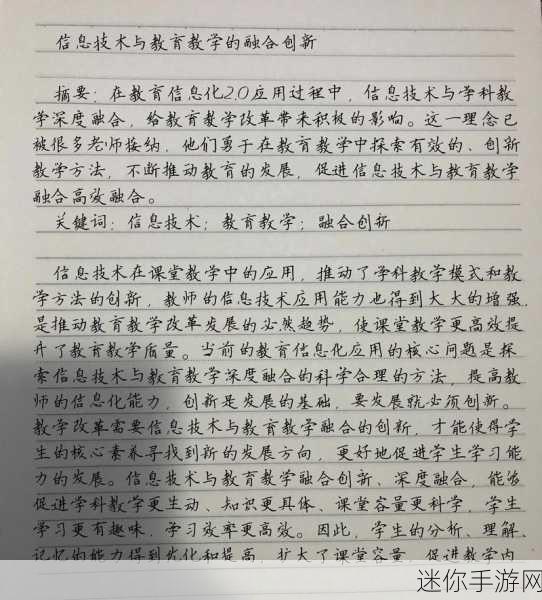 信息技术与教育教学的融合创新
摘要：在教育信息化2.0应用过程中，信息技术与学科教
学深度融合，给教育教学改革带来积极的影响。这一理念已
被很多老师接纳，他们勇于在教育教学中探索有效的、创新
教学方法，不断推动教育的发展，促进信息技术与教育教学
融合高效融合。
关键词：信息技术；教育教学；融合创新
信息技术在课堂教学中的应用，推动了学科教学模式和教
学方法的创新，教师的信息技术应用能力也得到大大的增强，
是推动教育教学改革发展的必然趋势，使课堂教学更高效提
升了教育教学质量。当前的教育信息化应用的核心问题是探
索信息技术与教育教学深度融合的科学合理的方法，提高教
师的信息化能力，创新是发展的基础，要发展就必须创新。
教学改革需要信息技术与教育教学融合的创新，才能使得学
生的核心素养寻找到新的发展方向，更好地促进学生学习能
力的发展。信息技术与教育教学融合创新、深度融合，能够
促进学科教学更生动、知识更具体、课堂容量更科学，学生
学习更有趣味，学习效率更高效。因此，学生的分析、理解、
记忆的能力得到优化和提高，扩大了课堂容量，促进教学内
迷你手游网